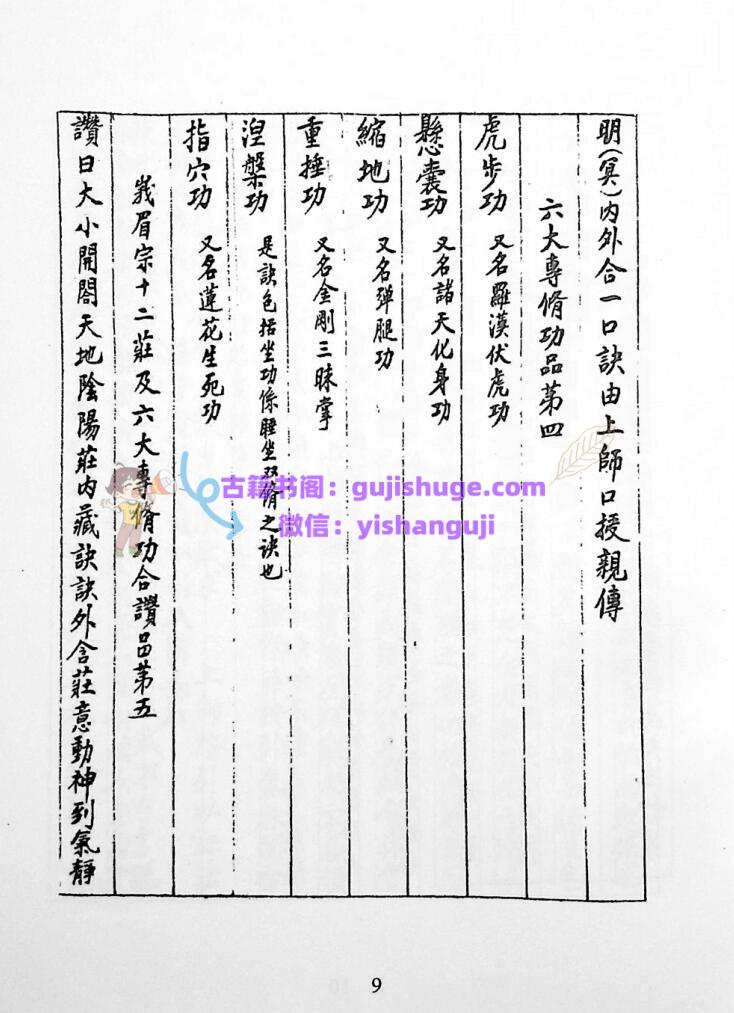 明(冥)内外合一口訣由上師口授親傳
六大專脩功品第四
虎步功 又名羅漢伏虎功
懸囊功 又名諸天化身功
縮地功 又名彈腿功
重捶功 又名金剛三昧掌
涅槃功 是訣包括坐功係睡坐双脩之诀也
指穴功 又名蓮花生死功
峩眉宗十二莊及六大專脩功合讚品第五
讚曰大小開閤天地陰陽莊内藏訣訣外含莊意動神到氣靜
古籍书阁：gujishuge.com
微信：yishanguji
9